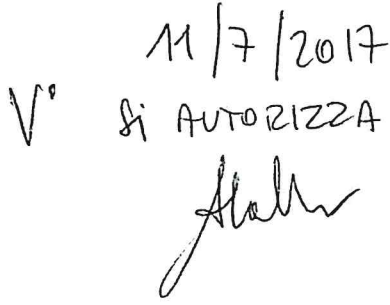 11/7/2017
V° Si AUTORIZZA